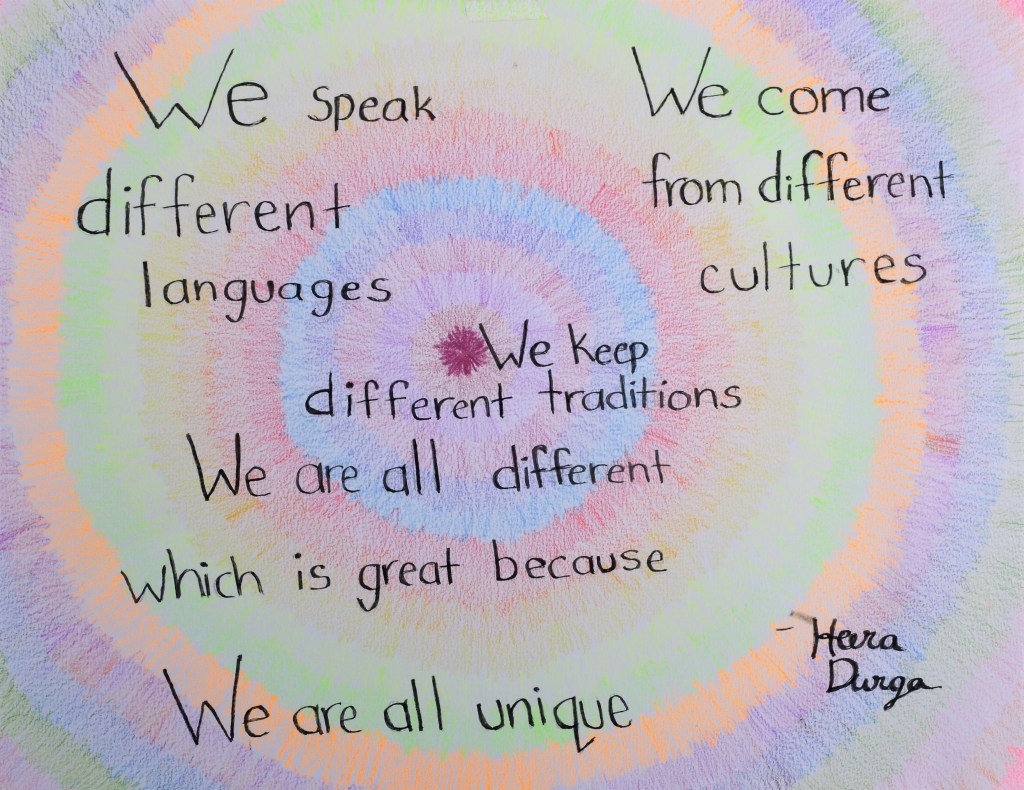 We speak
different
languages
We come
from different
cultures
We keep
different traditions
We are all different
which is great because
We are all unique
- Heera
Durga